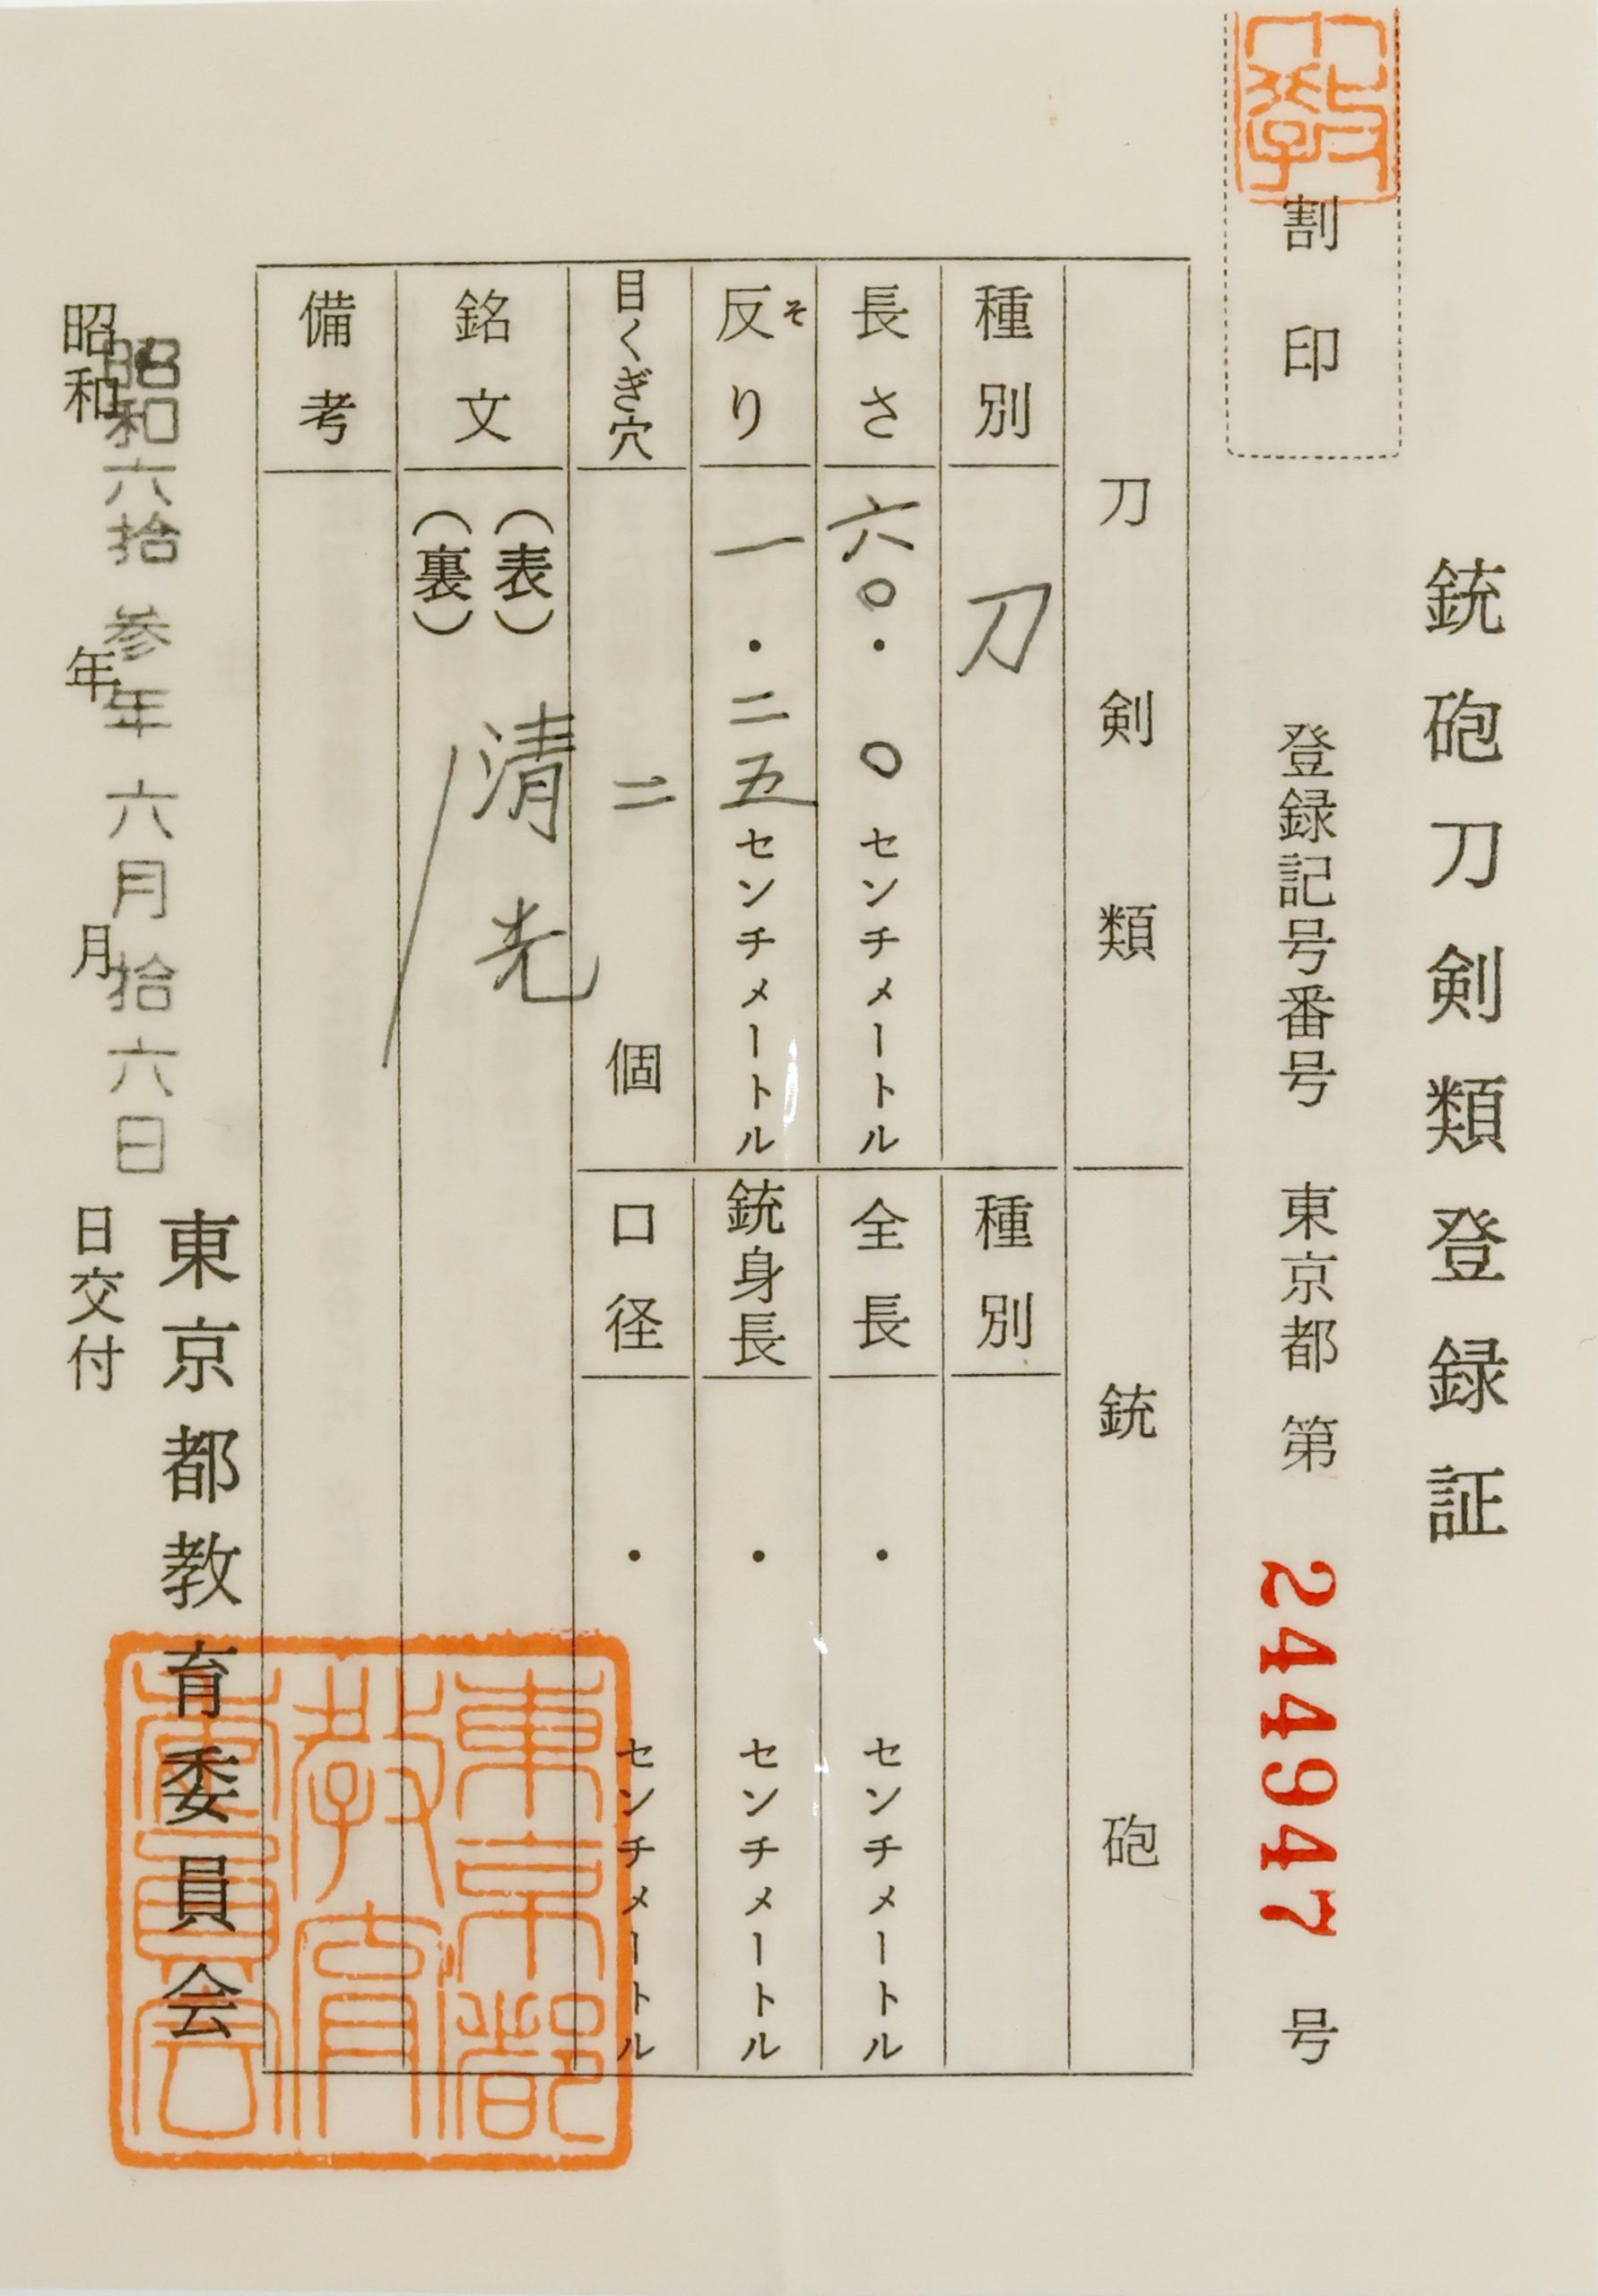 銃砲刀剣類登録証
割印
登録記号番号 東京都 第 244947 号
刀剣類
銃砲
種別 刀
種別
長さ 六〇.〇センチメートル
全長 ・ センチメートル
反り 一.二五センチメートル
そ
銃身長 ・ センチメートル
目くぎ穴 二 個
口径 ・ センチメートル
銘文 (表) 清光
(裏) /
備考
東京都教育委員会
昭和六拾参年六月拾六日
昭和 年 月 日交付
東京都
教育
委員会
教